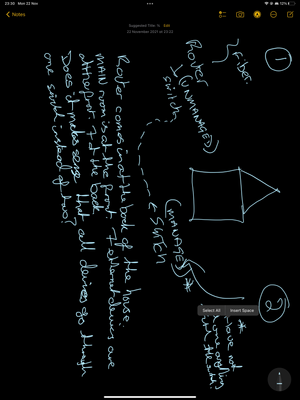 23:50 Mon 22 Nov
12%
Notes
Suggested Title: 1s Edit
22 November 2021 at 23:12
1
Fiber.
Router
(UNMANAGED)
switch
2
(MANAGED) *
SWITCH
*
have not
Select All
Insert Space
Router comes in at the back of the house.
MAIN room is at the front. 7 ethernet devices are
at the front. 7 at the back.
Does it make sense that all devices go through
one switch instead of two?